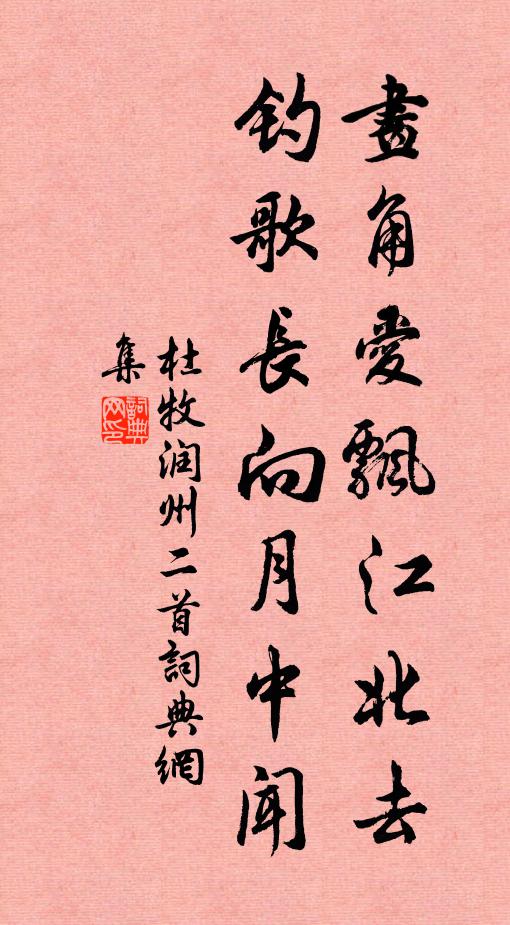 畫角愛飄江北去
釣歌長向月中聞
杜牧润州二首詞典網
集
詞典
网印